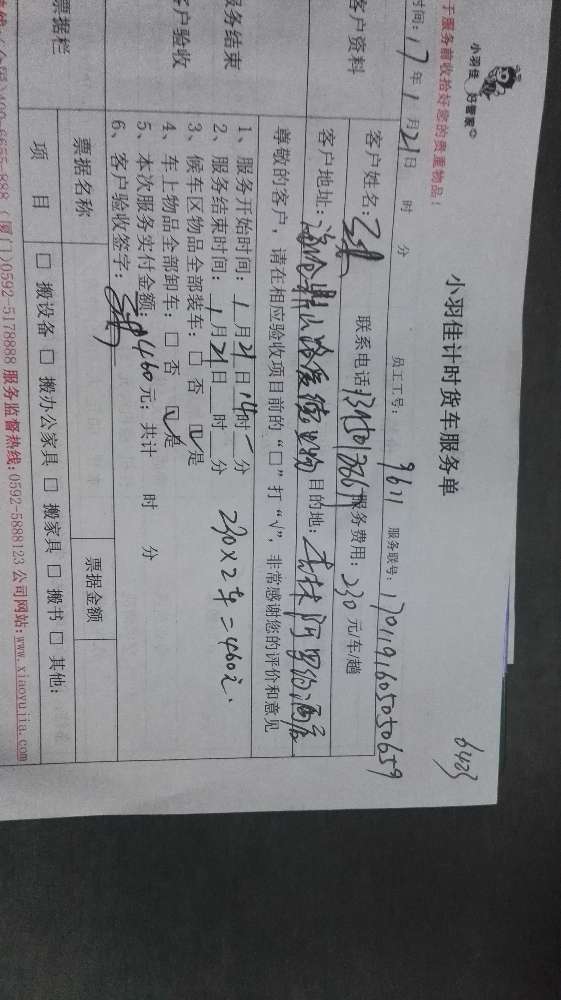 小羽佳 好管家
于服务前收拾好您的贵重物品！
小羽佳计时货车服务单
6423
时间：17年1月21日 时 分 员工工号：9611 服务联号：1701191605050659
客户资料
客户姓名： 联系电话： 服务费用：230元/车/趟
客户地址： 目的地：
尊敬的客户，请在相应验收项目前的“□”打“√”，非常感谢您的评价和意见
服务结束
客户验收
1、服务开始时间：1月21日14时 分
2、服务结束时间：1月21日 时 分
230×2车=460元.
3、候车区物品全部装车：□ 否 ☑是
4、车上物品全部卸车：□ 否 ☑是
5、本次服务实付金额：460元；共计 时 分
6、客户验收签字：
票据栏
票据名称 票据金额
项 目 □ 搬设备 □ 搬办公家具 □ 搬家具 □ 搬书 □ 其他：
(厦门)0592-5178888 服务监督热线:0592-5888123 公司网站:www.xiaoyujia.com